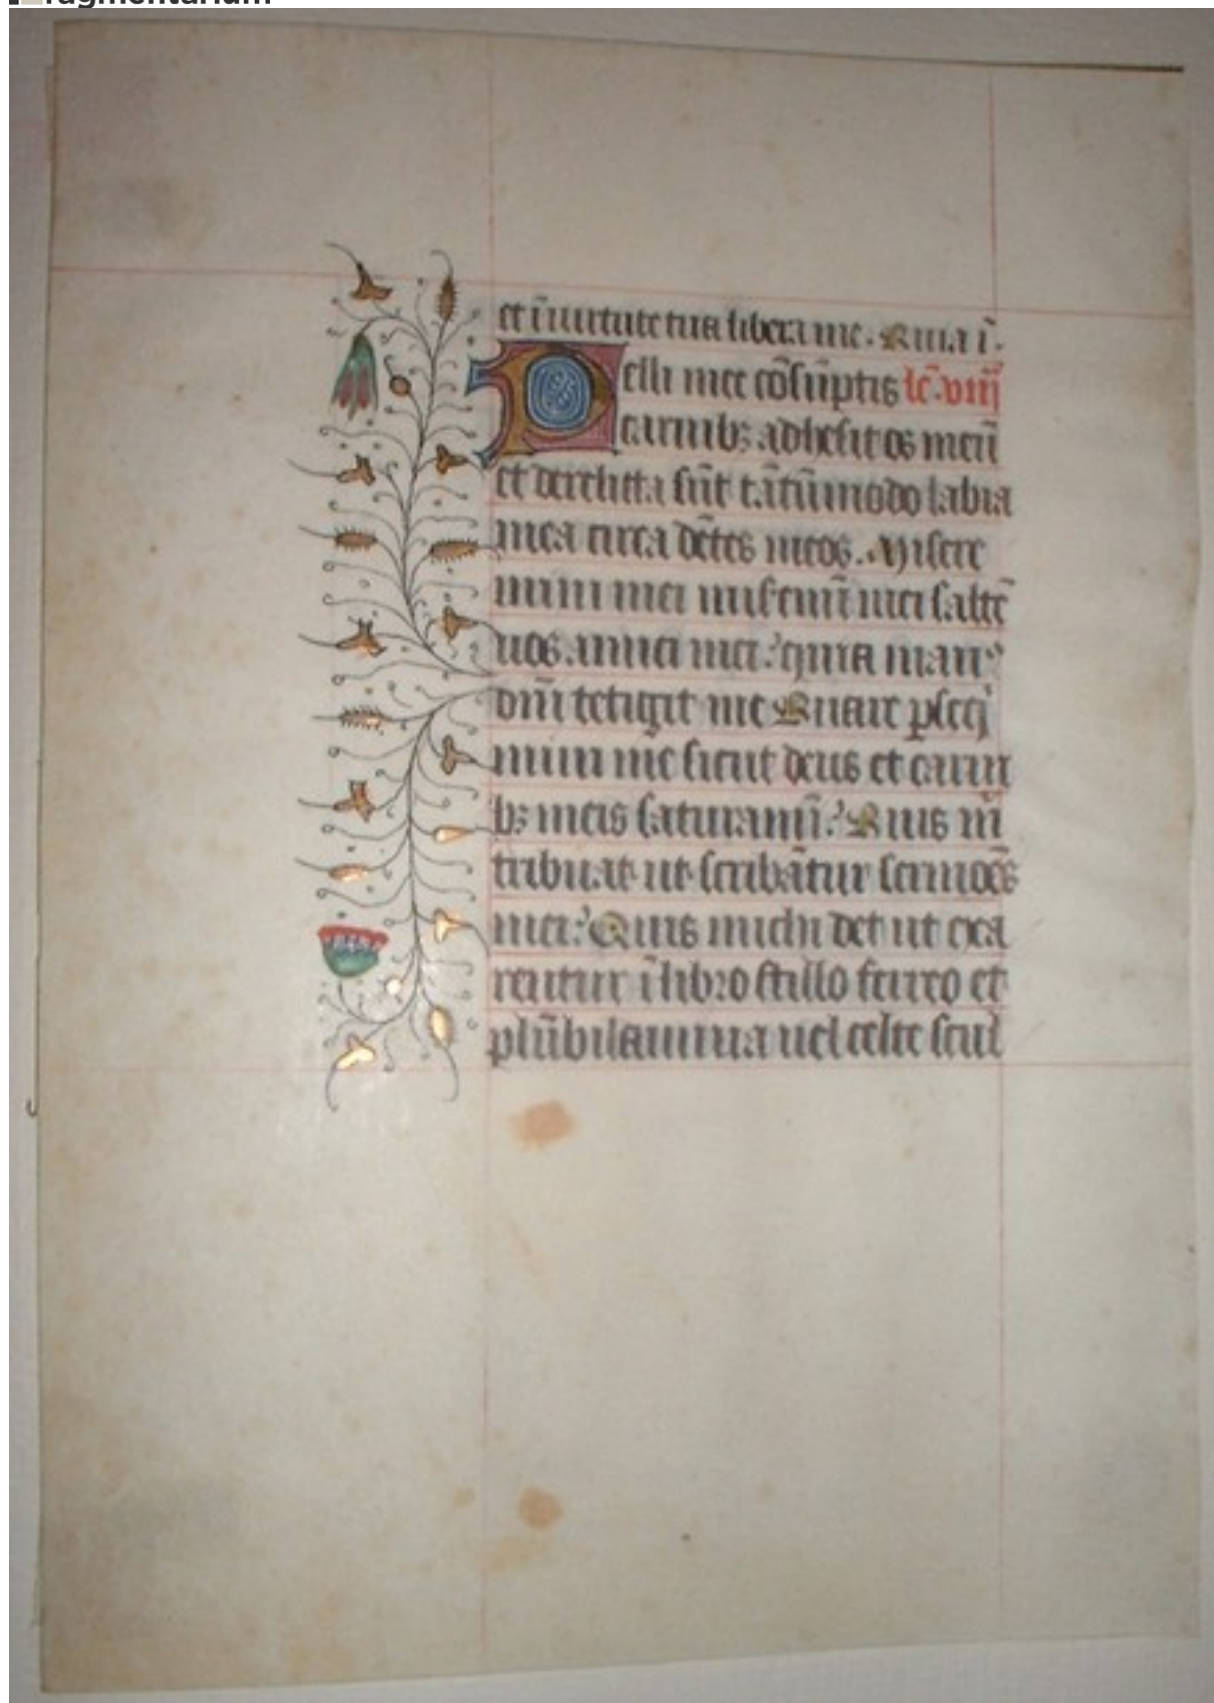 fragmentarium
et ĩ uirtute tua libera me. Quia ĩ.
Pelli mee cõsũptis lc̃. viij
carnibꝫ adhesit os meũ
et derelicta sũt tãtũmodo labia
mea circa dẽtes meos. Misere
mini mei misemĩ mei saltẽ
uos amici mei: quia manꝰ
dñi tetigit me Quare ꝑseqͥ
mini me sicut deus et carni
bꝫ meis saturamĩ: Quis m̃
tribuat ut scribãtur sermões
mei: Quis michi det ut exa
rentur ĩ libro stillo ferreo et
plũbi lamina uel celte scul